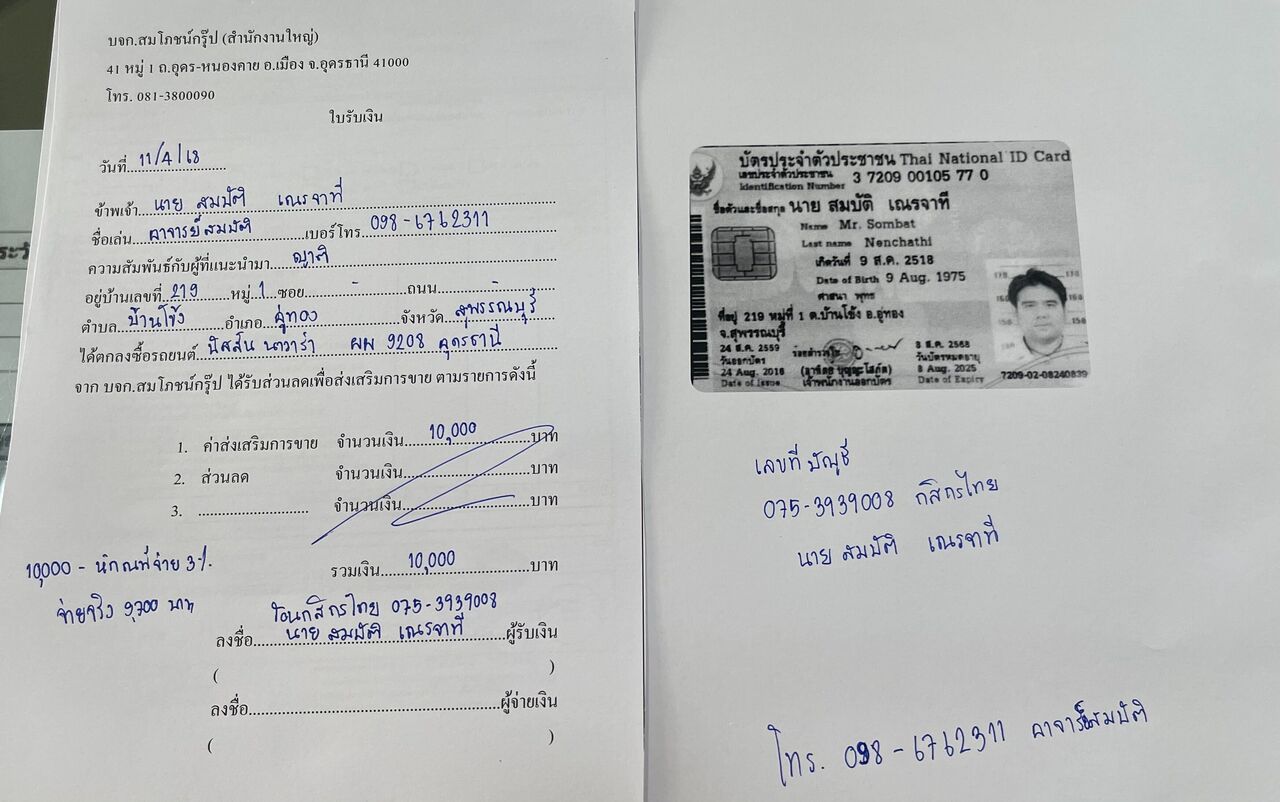 บจก.สมโภชน์กรุ๊ป (สำนักงานใหญ่)
41 หมู่ 1 ถ.อุดร-หนองคาย อ.เมือง จ.อุดรธานี 41000
โทร. 081-3800090
ใบรับเงิน
วันที่ 11/4/68
ข้าพเจ้า นาย สมบัติ เณรจาที่
ชื่อเล่น อาจารย์สมบัติ เบอร์โทร 098-6762311
ความสัมพันธ์กับผู้ที่แนะนำมา ญาติ
อยู่บ้านเลขที่ 219 หมู่ 1 ซอย - ถนน -
ตำบล บ้านโข้ง อำเภอ อู่ทอง จังหวัด สุพรรณบุรี
ได้ตกลงซื้อรถยนต์ นิสสัน นาวาร่า ผผ 9208 อุดรธานี
จาก บจก.สมโภชน์กรุ๊ป ได้รับส่วนลดเพื่อส่งเสริมการขาย ตามรายการดังนี้
1. ค่าส่งเสริมการขาย จำนวนเงิน 10,000 บาท
2. ส่วนลด จำนวนเงิน บาท
3. จำนวนเงิน บาท
10,000 - หักณที่จ่าย 3%
รวมเงิน 10,000 บาท
จ่ายจริง 9,700 บาท
โอนกสิกรไทย 075-3939008
ลงชื่อ นาย สมบัติ เณรจาที่ ผู้รับเงิน
( )
ลงชื่อ ผู้จ่ายเงิน
( )
บัตรประจำตัวประชาชน Thai National ID Card
เลขประจำตัวประชาชน 3 7209 00105 77 0
Identification Number
ชื่อตัวและชื่อสกุล นาย สมบัติ เณรจาที
Name Mr. Sombat
Last name Nenchathi
เกิดวันที่ 9 ส.ค. 2518
Date of Birth 9 Aug. 1975
ศาสนา พุทธ
ที่อยู่ 219 หมู่ที่ 1 ต.บ้านโข้ง อ.อู่ทอง
จ.สุพรรณบุรี
24 ส.ค. 2559
วันออกบัตร
24 Aug. 2016
Date of Issue
เจ้าพนักงานออกบัตร
8 ส.ค. 2568
วันบัตรหมดอายุ
8 Aug. 2025
Date of Expiry
7209-02-08240839
เลขที่ บัญชี
075-3939008 กสิกรไทย
นาย สมบัติ เณรจาที่
โทร. 098-6762311 อาจารย์สมบัติ